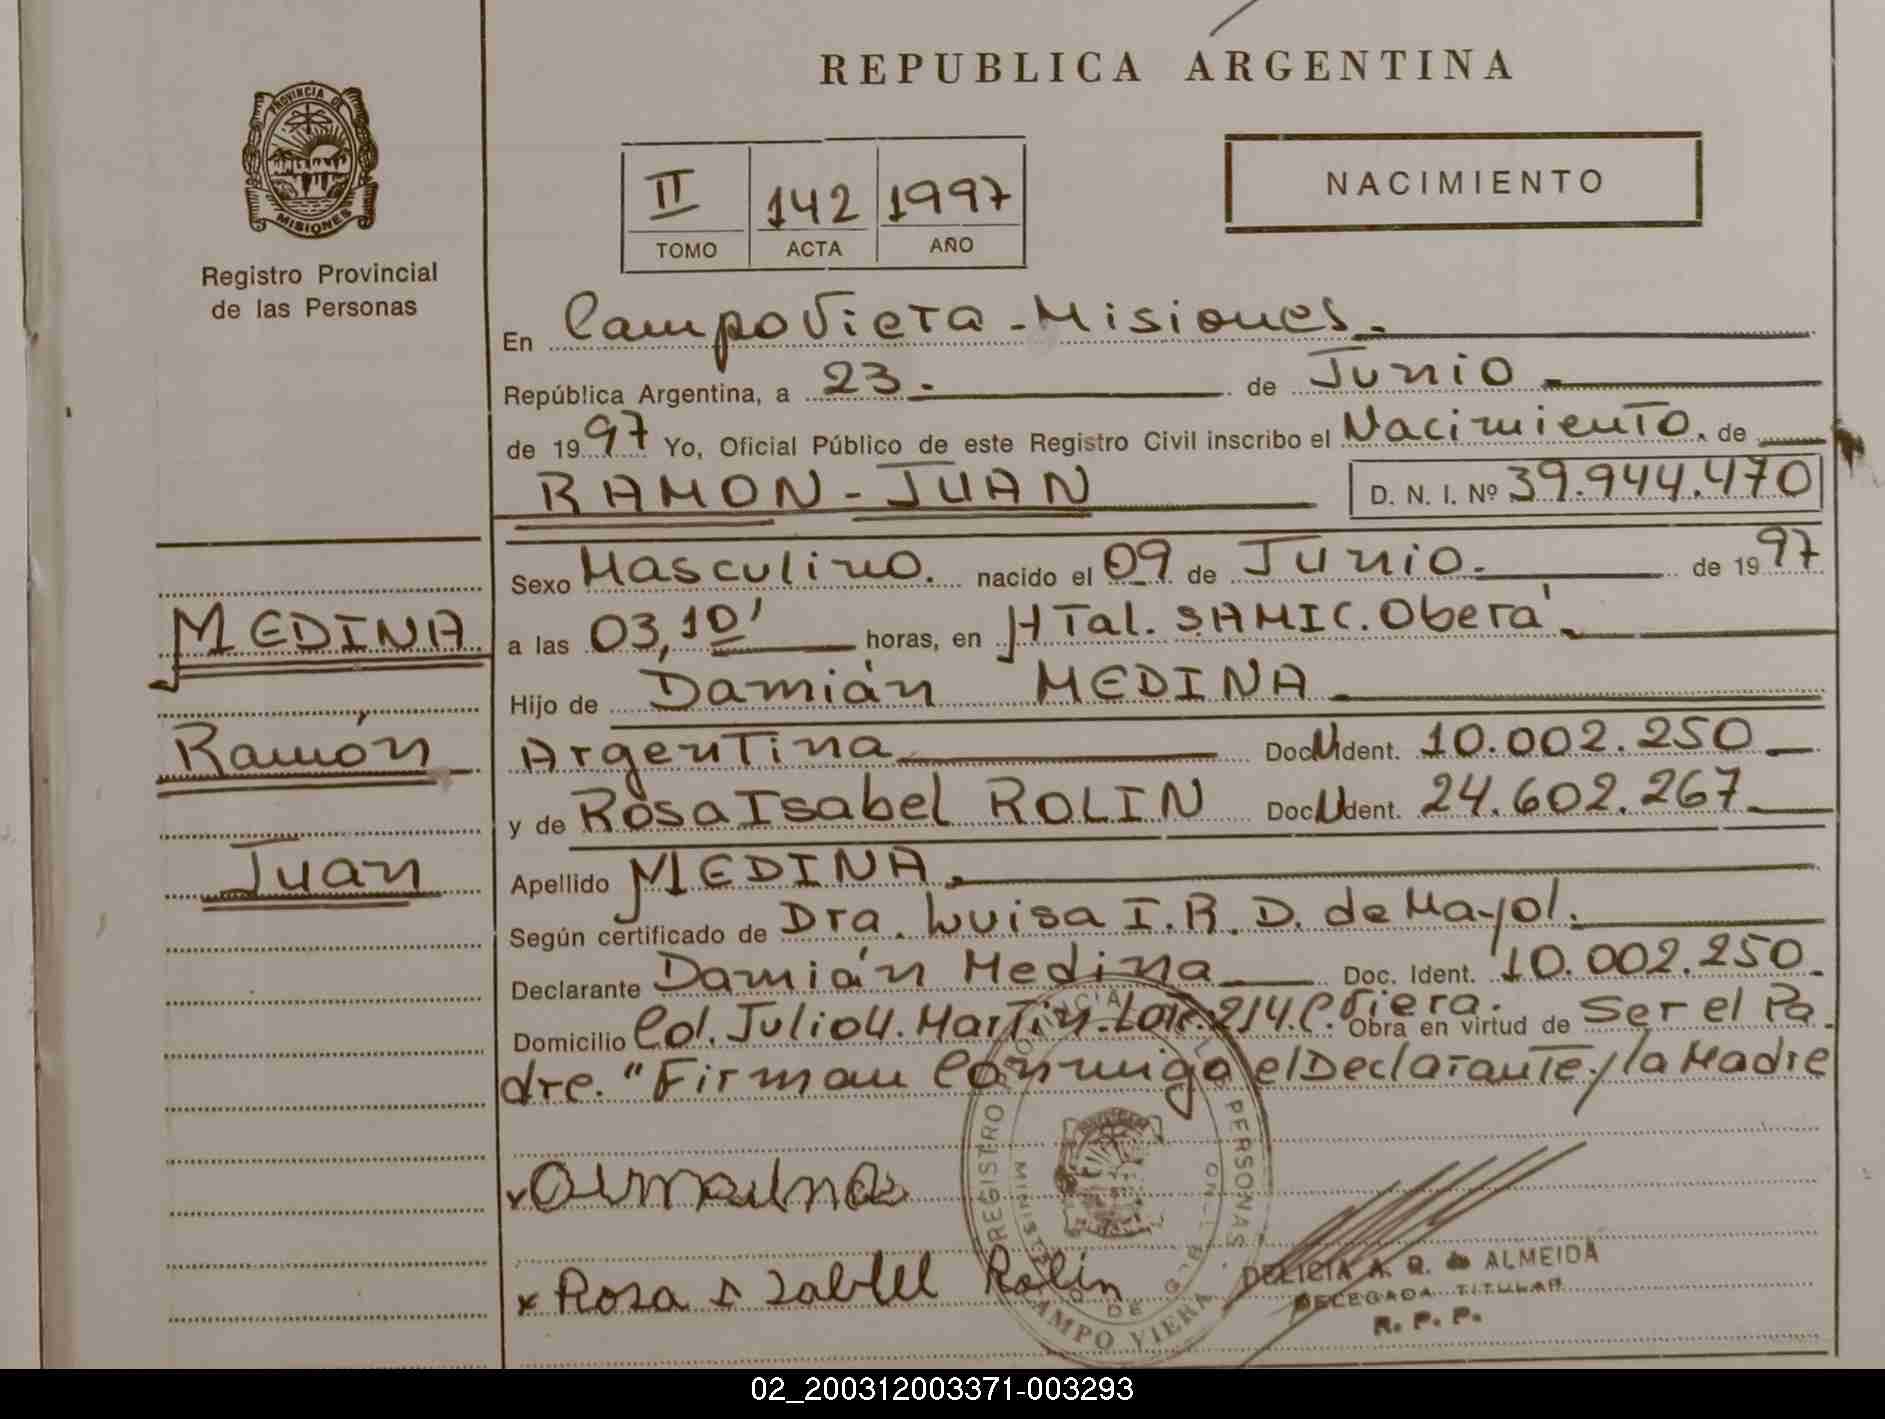 REPUBLICA ARGENTINA
PROVINCIA DE
MISIONES
Registro Provincial
de las Personas
II 142 1997
TOMO ACTA AÑO
NACIMIENTO
En Campo Viera - Misiones.
República Argentina, a 23. de Junio
de 1997 Yo, Oficial Público de este Registro Civil inscribo el Nacimiento. de
RAMON - JUAN D. N. I. Nº 39.944.470
Sexo Masculino. nacido el 09 de Junio. de 1997
a las 03,10' horas, en HTal. SAMIC. Oberá
Hijo de Damián MEDINA
Argentina Doc. Ident. 10.002.250
y de Rosa Isabel ROLIN Doc. Ident. 24.602.267
Apellido MEDINA.
Según certificado de Dra. Luisa I. R. D. de Mayol.
Declarante Damián Medina Doc. Ident. 10.002.250
Domicilio Col. Julio U. Martin. Lote: 214. C. Viera. Obra en virtud de Ser el Pa
dre. "Firman Conmigo el Declarante y la Madre
MEDINA
Ramón
Juan
x Rosa Isabel Rolin
REGISTRO PROVINCIAL DE LAS PERSONAS
CAMPO VIERA
DELICIA A. R. de ALMEIDA
DELEGADA TITULAR
R. P. P.
02_200312003371-003293